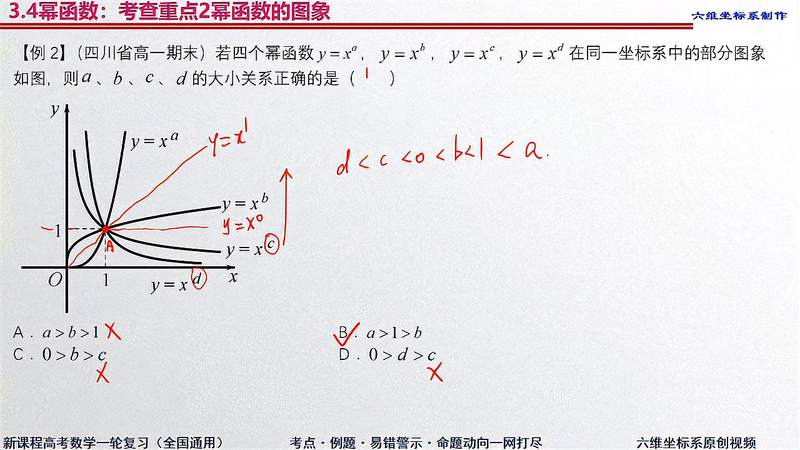 3.4幂函数：考查重点2幂函数的图象
六维坐标系制作
【例2】（四川省高一期末）若四个幂函数 y=xᵃ，y=xᵇ，y=xᶜ，y=xᵈ 在同一坐标系中的部分图象
如图，则a、b、c、d 的大小关系正确的是（ ）
y
y=xᵃ
y=x¹
d<c<0<b<1<a.
y=xᵇ
1
y=x⁰
A
y=xᶜ
O
1
y=xᵈ
x
A．a>b>1
B．a>1>b
C．0>b>c
D．0>d>c
新课程高考数学一轮复习（全国通用）
考点·例题·易错警示·命题动向一网打尽
六维坐标系原创视频